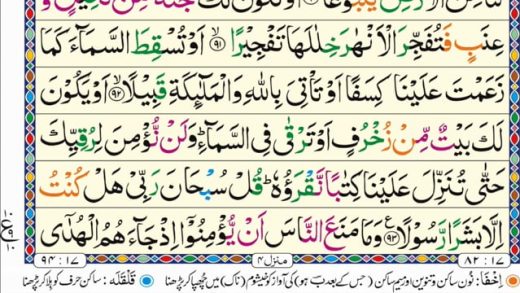 عِنَبٍ فَتُفَجِّرَ الْاَنْهٰرَ خِلٰلَهَا تَفْجِيْرًا ۙ﴿۹۱﴾ اَوْ تُسْقِطَ السَّمَآءَ كَمَا
زَعَمْتَ عَلَيْنَا كِسَفًا اَوْ تَاْتِيَ بِاللّٰهِ وَالْمَلٰٓئِكَةِ قَبِيْلًا ۙ﴿۹۲﴾ اَوْ يَكُوْنَ
لَكَ بَيْتٌ مِّنْ زُخْرُفٍ اَوْ تَرْقٰى فِى السَّمَآءِ ؕ وَلَنْ نُّؤْمِنَ لِرُقِيِّكَ
حَتّٰى تُنَزِّلَ عَلَيْنَا كِتٰبًا نَّقْرَؤُهٗ ؕ قُلْ سُبْحَانَ رَبِّىْ هَلْ كُنْتُ
اِلَّا بَشَرًا رَّسُوْلًا ﴿۹۳﴾ ع وَمَا مَنَعَ النَّاسَ اَنْ يُّؤْمِنُوْۤا اِذْ جَآءَهُمُ الْهُدٰٓى
۸۲ : ۱۷ منزل ۴ ۹۴ : ۱۷
اِخفَا: نُون ساکن و تنوین اور میم ساکن (جس کے بعد ب ہو) کی آواز کو خیشوم (ناک) میں چھپا کر پڑھنا قَلقَلَہ: ساکن حرف کو ہلا کر پڑھنا